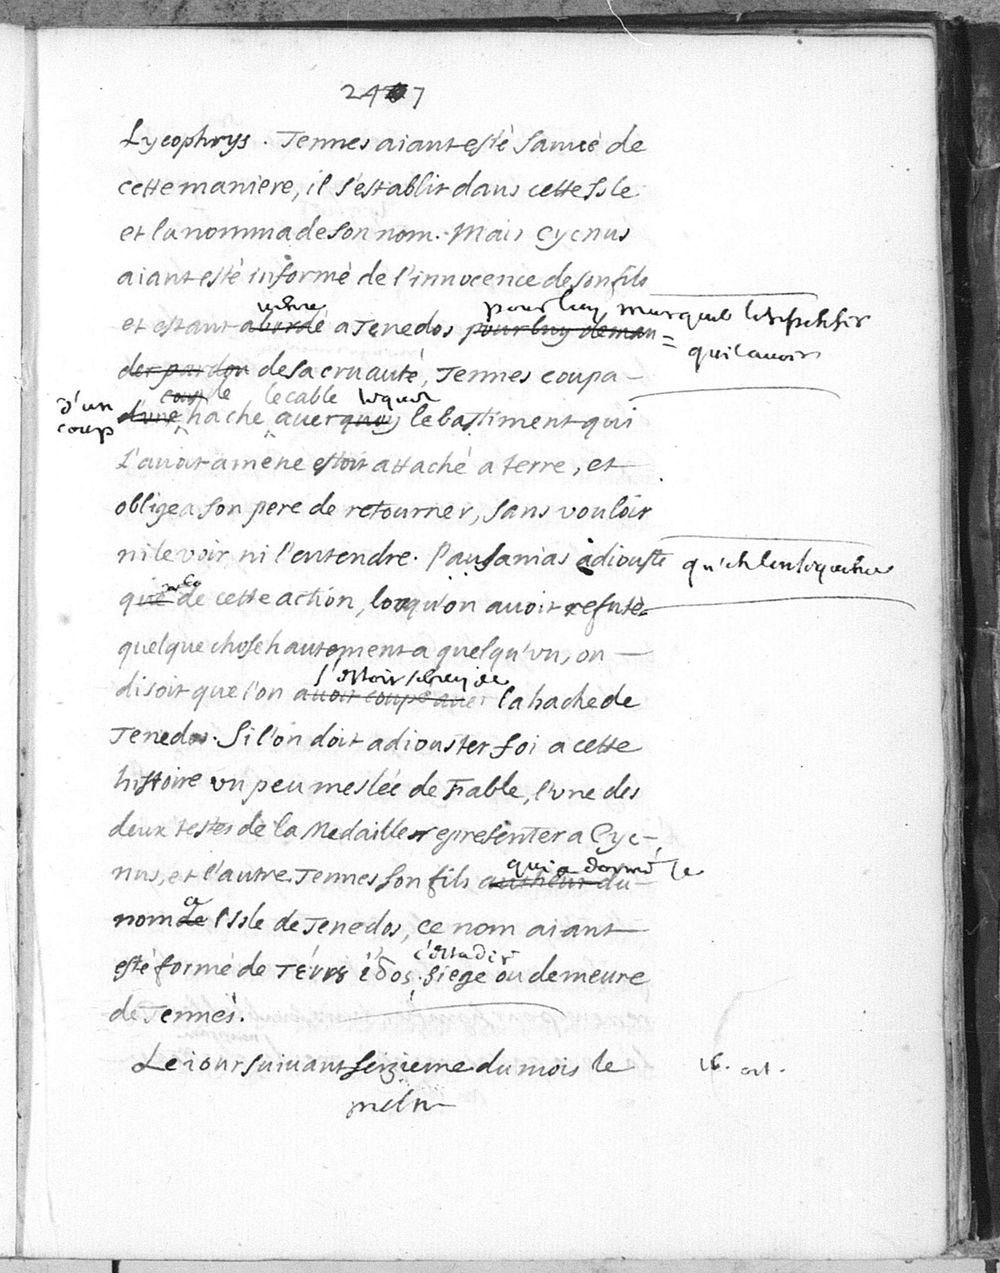 247
Lycophrys. Tennes aiant esté sauué de
cette maniere, il s'establit dans cette Isle
et la nomma de son nom. Mais Cycnus
aiant esté informé de l'innocence de son fils
et estant abordé a Tenedos pour luy deman=
pour luy marquer
qu'il auoit
der pardon de sa cruauté, Tennes coupa
le cable
d'un
coup
d'une hache auec quoy le bastiment qui
l'auoit amené estoit attaché a terre, et
obligea son pere de retourner, sans vouloir
ni le voir ni l'entendre. Pausanias adiouste
que de cette action, lorsqu'on auoit refuté
quelque chose hautement a quelqu'vn, on
l'estoit seruy de
disoit que l'on auoit coupé auec la hache de
Tenedos. Si l'on doit adiouster foi a cette
histoire vn peu meslée de Fable, l'vne des
deux testes de la Medaille representera Cyc-
qui a donné le
nus, et l'autre Tennes son fils autheur du
a
nom de l'Isle de Tenedos, ce nom aiant
c'est a dire
esté formé de Τέννȣ ἕδος siege ou demeure
de Tennes.
Le iour suiuant seizieme du mois le
16. oct.